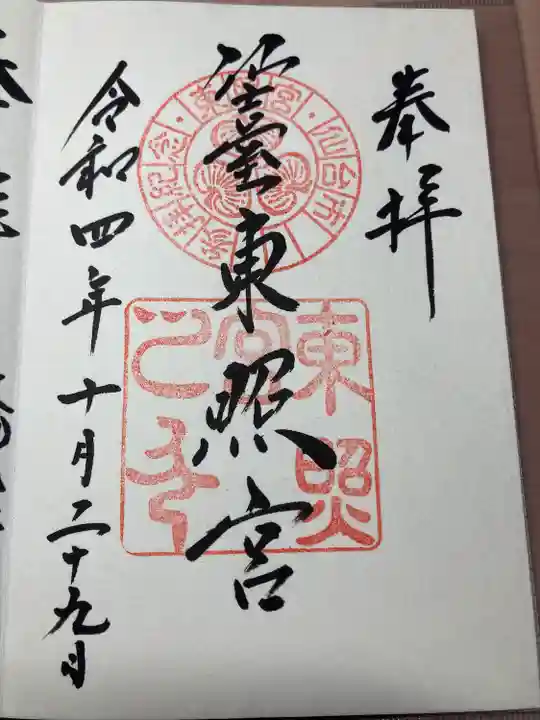 奉拝
仙臺東照宮
令和四年十月二十九日
東宮・仙台市・参拝記念・
東照
宮
之印